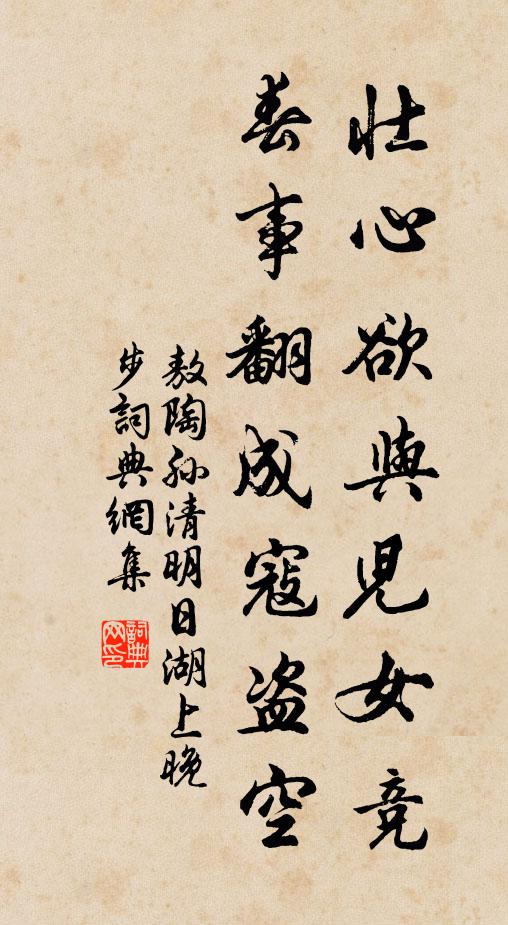 壮心欲與兒女竞
春事翻成寇盗空
敖陶孙清明日湖上晚
步詞典網集
詞典
网印